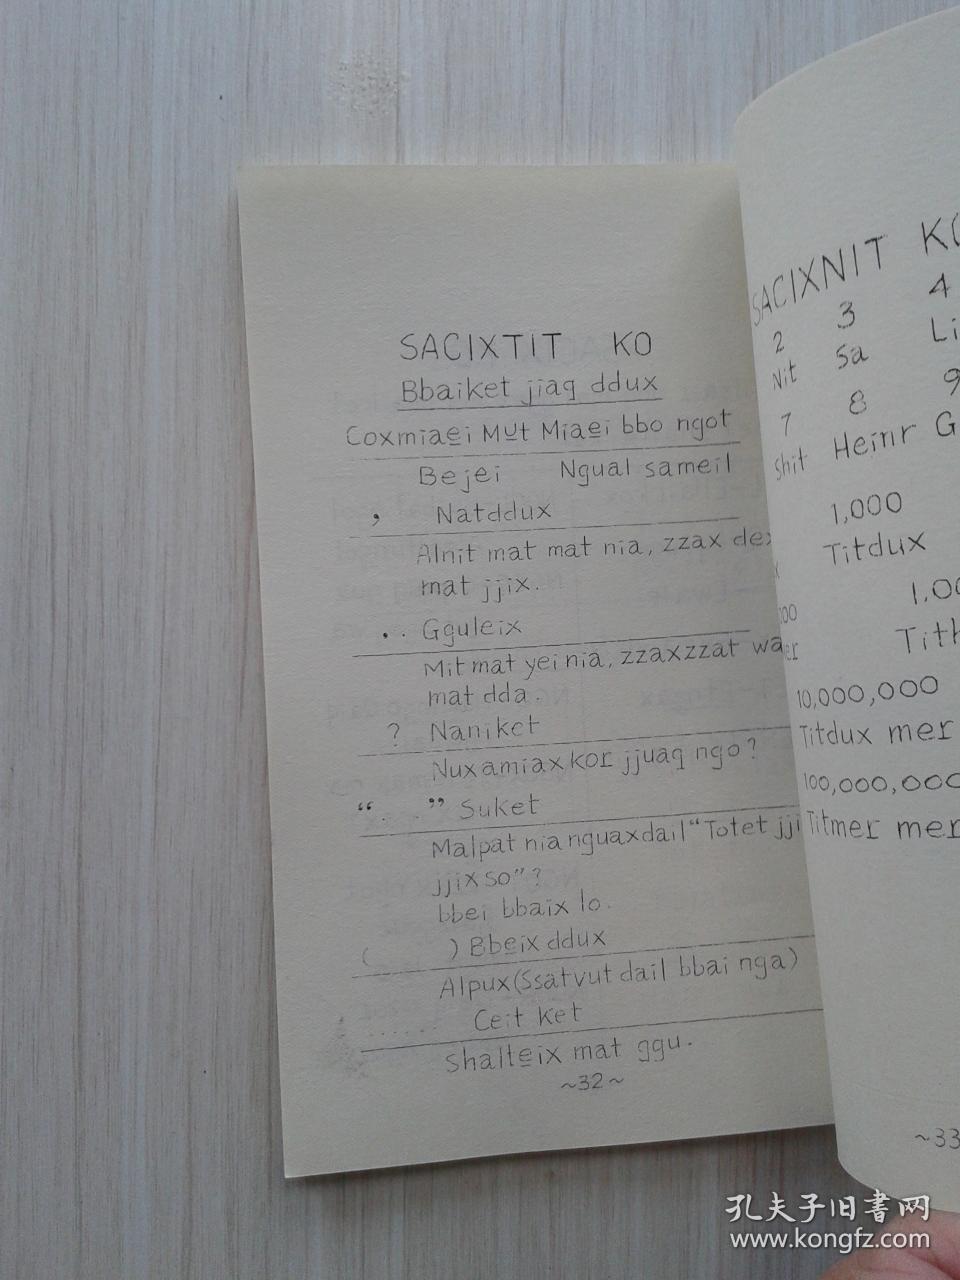 SACIXTIT KO
Bbaiket jiaq ddux
Coxmiae̲i Mu̲t Miae̲i bbo ngot
Bejei Ngual sameil
, Natddux
Alnit mat mat nia, zzax
mat jjix.
.. Gguleix
Mit mat yei nia, zzaxzzat
mat dda.
? Naniket
Nuxamiax kor jjuaq ngo?
“. .” Suket
Malpat nia nguaxdail “Totet
jjix so”?
bbei bbaix lo.
( ) Bbe̲ix ddux
Alpux (Ssatvut dail bbai nga)
...... Ceit ket
Shalte̲ix mat ggu.
~32~
SACIXNIT
2 3 4
Nit Sa
7 8 9
Shit Heinr
1,000
Titdux
10,000,000
Titdux mer
100,000,000
Titmer mer
~33
孔夫子旧书网
www.kongfz.com